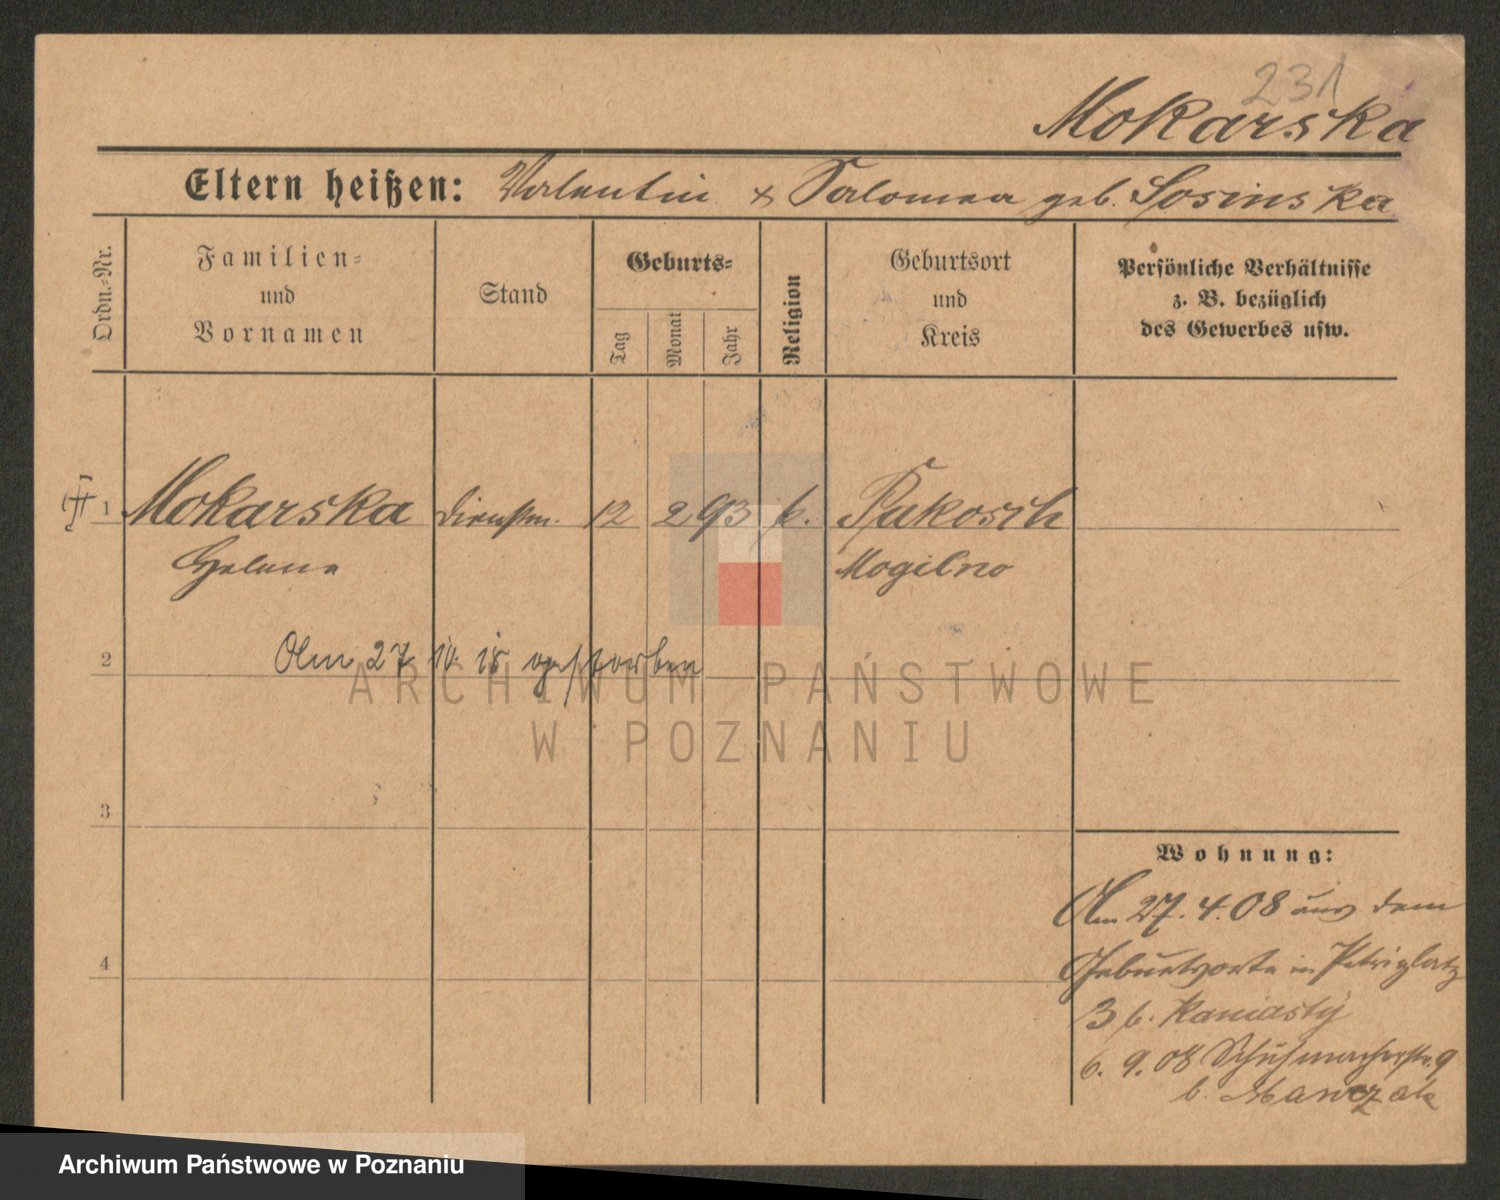 231
Mokarska
Eltern heißen: Valentin & Salomea geb. Sosinska
Ordn.-Nr.
Familien-
und
Vornamen
Stand
Geburts-
Tag
Monat
Jahr
Religion
Geburtsort
und
Kreis
Persönliche Verhältnisse
z. B. bezüglich
des Gewerbes usw.
1 Mokarska Dienstm. 12 2 93 k. Pakosch
Helena Mogilno
2 Am 27. 10. 18 gestorben
3
4
Wohnung:
Am 27. 4. 08 aus dem
Geburtsorte in Petriplatz
3 b. Kaniasty
6. 9. 08 Schuhmacherstr. 9
b. Mawczak
ARCHIWUM PAŃSTWOWE
W POZNANIU
Archiwum Państwowe w Poznaniu